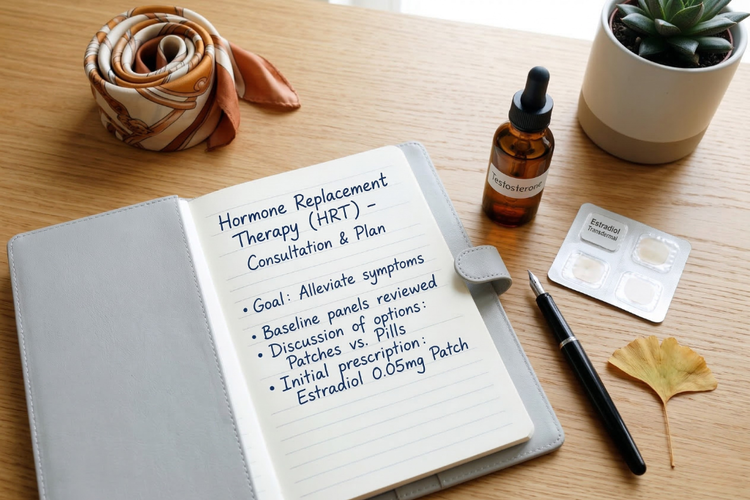 Hormone Replacement
Therapy (HRT) –
Consultation & Plan
• Goal: Alleviate symptoms
• Baseline panels reviewed
• Discussion of options:
Patches vs. Pills
• Initial prescription:
Estradiol 0.05mg Patch
Testosterone
Estradiol
Transdermal